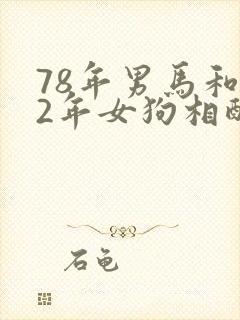 78年男馬和
2年女狗相配
石龟